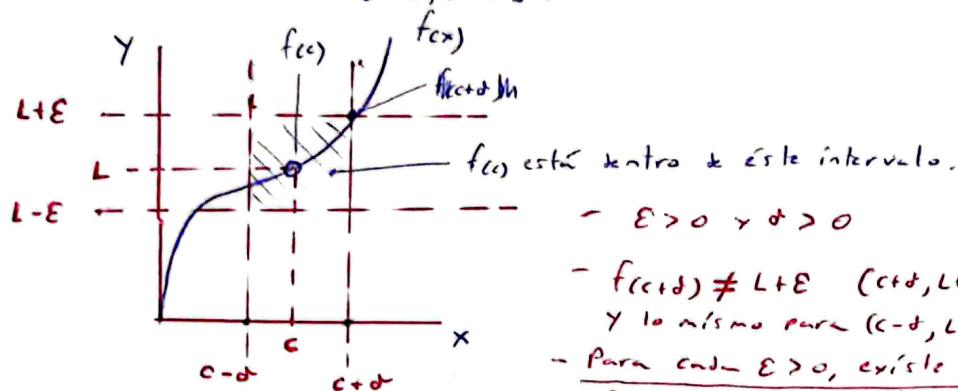 Y
f(c)
f(x)
L+ε
L
f(c) está dentro de éste intervalo.
L-ε
- ε>0 y δ>0
- f(c+δ) ≠ L+ε (c+δ, L+
y lo mismo para (c-δ, L
- Para cada ε>0, existe
c-δ
c
c+δ
X